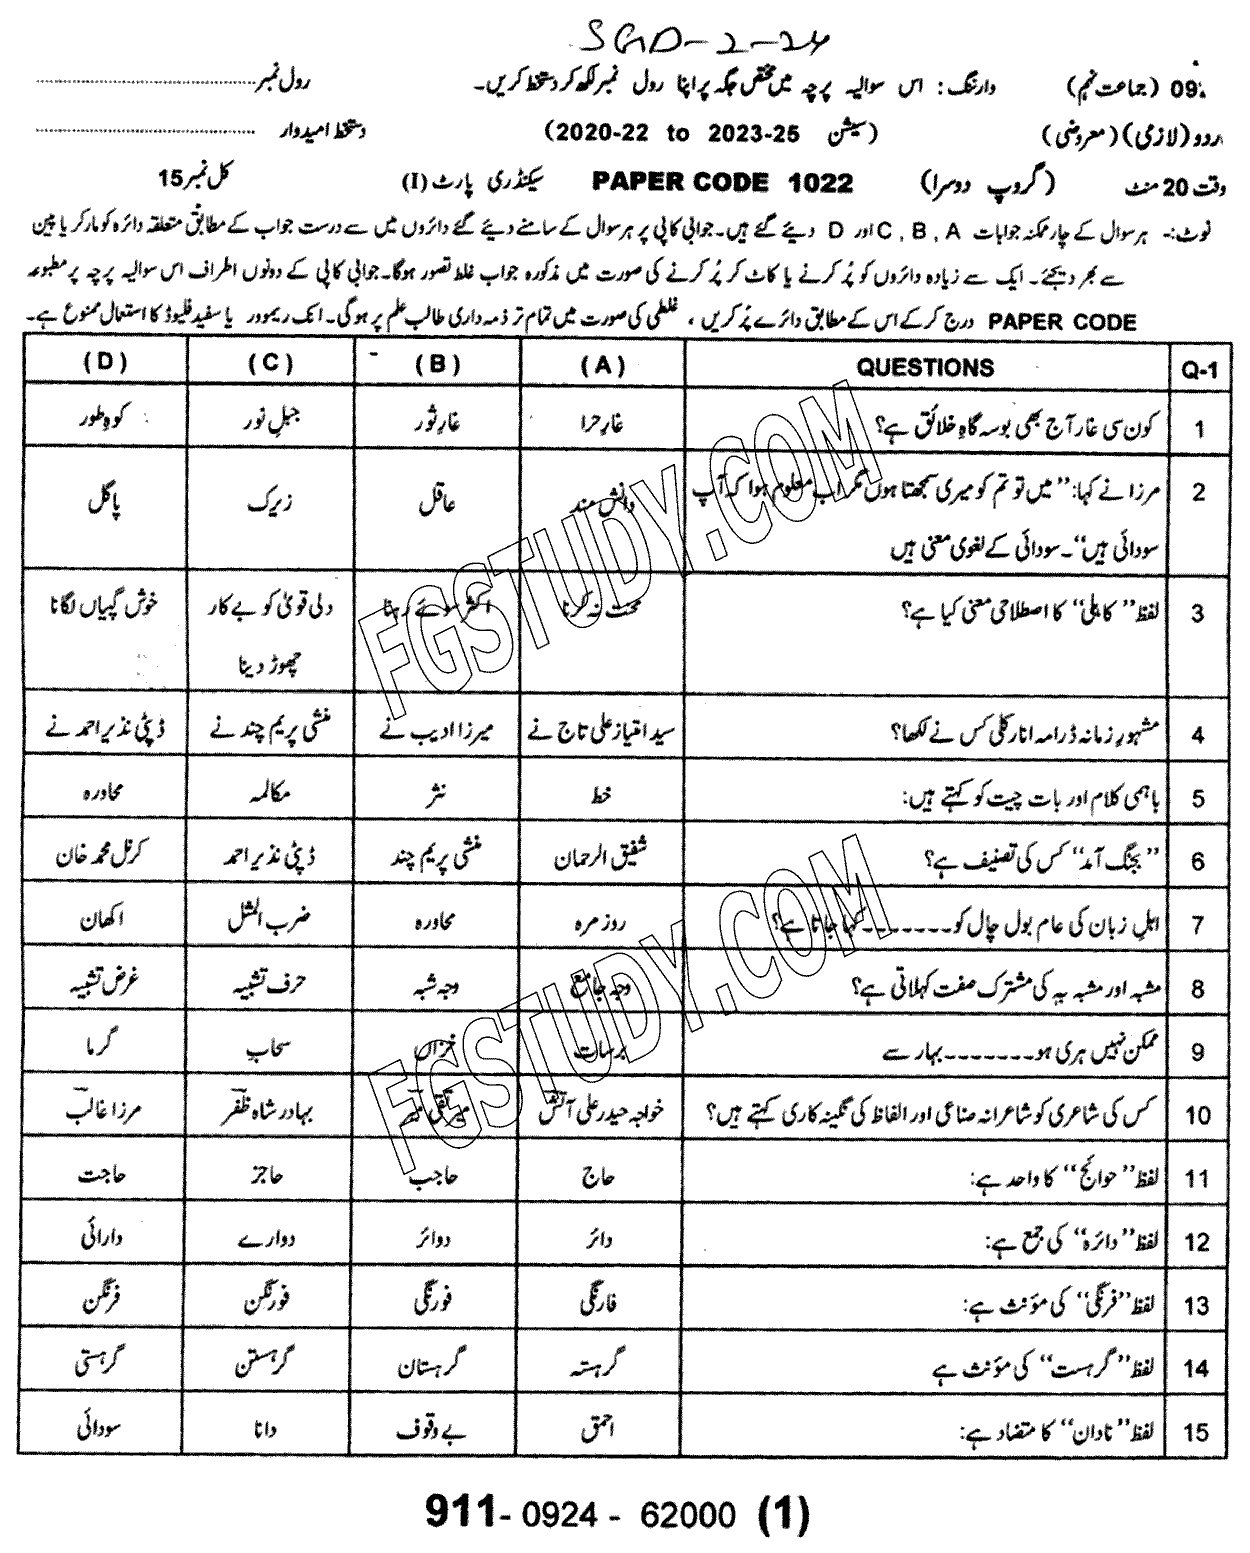 SGD-2-24
09 (جماعت نہم) وارننگ: اس سوالیہ پرچہ میں مختص جگہ پر اپنا رول نمبر لکھ کر دستخط کریں۔ رول نمبر
اردو (لازمی) (معروضی) (سیشن 2020-22 to 2023-25) دستخط امیدوار
وقت 20 منٹ (گروپ دوسرا) PAPER CODE 1022 سیکنڈری پارٹ (I) کل نمبر 15
نوٹ:۔ ہر سوال کے چار ممکنہ جوابات A , B , C اور D دیئے گئے ہیں۔ جوابی کاپی پر ہر سوال کے سامنے دیئے گئے دائروں میں سے درست جواب کے مطابق متعلقہ دائرہ کو مارکر یا پین
سے بھر دیجئے۔ ایک سے زیادہ دائروں کو پُر کرنے یا کاٹ کر پُر کرنے کی صورت میں مذکورہ جواب غلط تصور ہوگا۔ جوابی کاپی کے دونوں اطراف اس سوالیہ پرچہ پر مطبوعہ
PAPER CODE درج کر کے اس کے مطابق دائرے پُر کریں، غلطی کی صورت میں تمام تر ذمہ داری طالب علم پر ہوگی۔ انک ریموور یا سفید فلیوڈ کا استعمال ممنوع ہے۔
Q-1 QUESTIONS (A) (B) (C) (D)
1 کون سی غار آج بھی بوسہ گاہِ خلائق ہے؟ غارِ حرا غارِ ثور جبلِ نور کوہِ طور
2 مرزا نے کہا: "میں تو تم کو میری سمجھتا ہوں مگر اب معلوم ہوا کہ آپ دانش مند عاقل زیرک پاگل
سودائی ہیں"۔ سودائی کے لغوی معنی ہیں
3 لفظ "کاہلی" کا اصطلاحی معنی کیا ہے؟ محنت نہ کرنا اکثر سوئے رہنا دلی قویٰ کو بے کار خوش گپیاں لگانا
چھوڑ دینا
4 مشہورِ زمانہ ڈرامہ انارکلی کس نے لکھا؟ سید امتیاز علی تاج نے میرزا ادیب نے منشی پریم چند نے ڈپٹی نذیر احمد نے
5 باہمی کلام اور بات چیت کو کہتے ہیں: خط نثر مکالمہ محاورہ
6 "بجنگ آمد" کس کی تصنیف ہے؟ شفیق الرحمان منشی پریم چند ڈپٹی نذیر احمد کرنل محمد خان
7 اہلِ زبان کی عام بول چال کو۔۔۔۔۔۔۔کہا جاتا ہے؟ روزمرہ محاورہ ضرب المثل اکھان
8 مشبہ اور مشبہ بہ کی مشترک صفت کہلاتی ہے؟ وجہ جامع وجہ شبہ حرف تشبیہ غرض تشبیہ
9 ممکن نہیں ہری ہو۔۔۔۔۔۔۔بہار سے برسات خزاں سحاب گرما
10 کس کی شاعری کو شاعرانہ صناعی اور الفاظ کی نگینہ کاری کہتے ہیں؟ خواجہ حیدر علی آتشؔ میر تقی میرؔ بہادر شاہ ظفرؔ مرزا غالبؔ
11 لفظ "حوائج" کا واحد ہے: حاج حاجب حاجز حاجت
12 لفظ "دائرہ" کی جمع ہے: دائر دوائر دوارے دارائی
13 لفظ "فرنگی" کی مؤنث ہے: فارنگی فورنگی فورنگن فرنگن
14 لفظ "گرہست" کی مؤنث ہے گرہستہ گرہستان گرہستن گرہستی
15 لفظ "نادان" کا متضاد ہے: احمق بے وقوف دانا سودائی
911-0924 - 62000 (1)
FGSTUDY.COM
FGSTUDY.COM